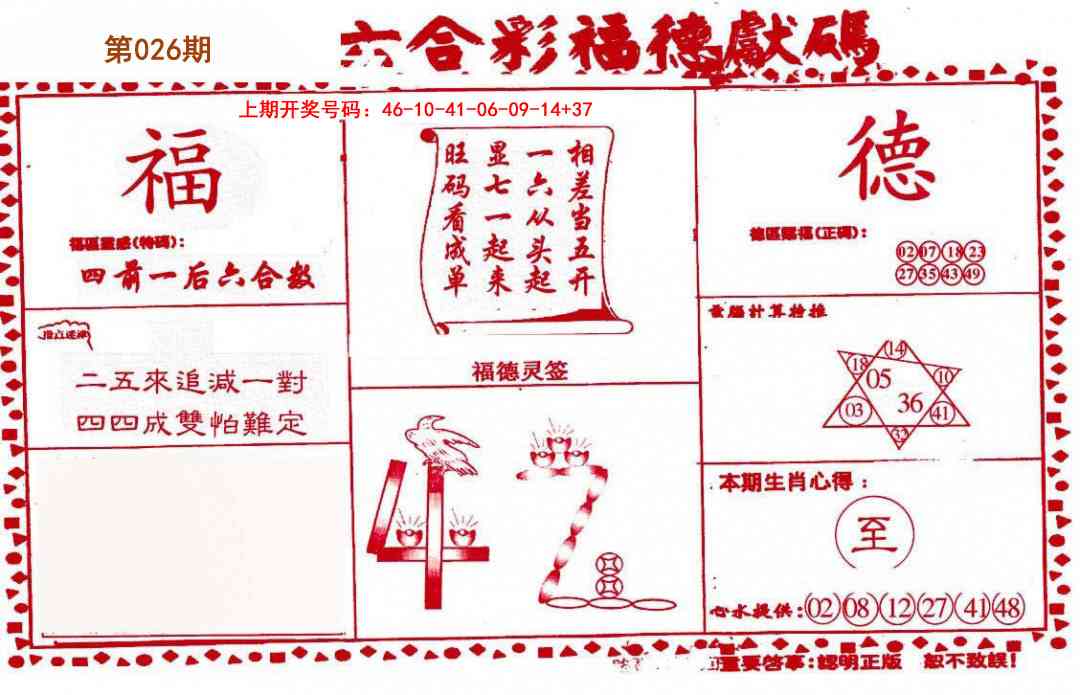 第026期
六合彩福德獻碼
上期开奖号码：46-10-41-06-09-14+37
福
福區靈感(特碼)：
四前一后六合数
二五來追減一對
四四成雙怕難定
相差当五开
一六从头起
显七一起来
旺码看成单
福德灵签
德
德區賜福(正碼)：
02 07 18 23
27 35 43 49
電腦計算榜推
14
18
05
10
03
36
41
32
本期生肖心得：
至
心水提供：02 08 12 27 41 48
重要啓事：認明正版 恕不致誤！